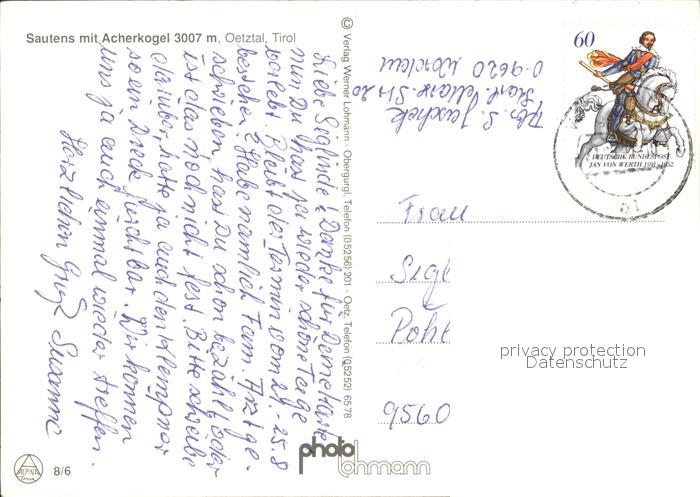 Sautens mit Acherkogel 3007 m, Oetztal, Tirol
Liebe Sieglinde! Danke für Deine Karte
nun Du hast ja wieder schöne Tage
verlebt. Bleibt der Termin vom 21. - 25.8
bestehen? Habe nämlich Fam. ge-
schrieben hast Du schon bezahlt oder
ist das noch nicht fest. Bitte schreibe
darüber, hatte ja auch den Klempner
so ein Dreck furchtbar. Wir können
uns ja auch einmal wieder treffen.
Herzlichen Gruß Susanne
© Verlag Werner Lohmann - Obergurgl, Telefon (05256) 201 - Oetz, Telefon (05252) 6578
Abs. S. Jaschek
O-9620 Werdau
60
DEUTSCHE BUNDESPOST
JAN VON WERTH 1591-1652
Frau
Sigl
Pohl
9560
privacy protection
Datenschutz
photo
lohmann
ALPINA
Druck
8/6